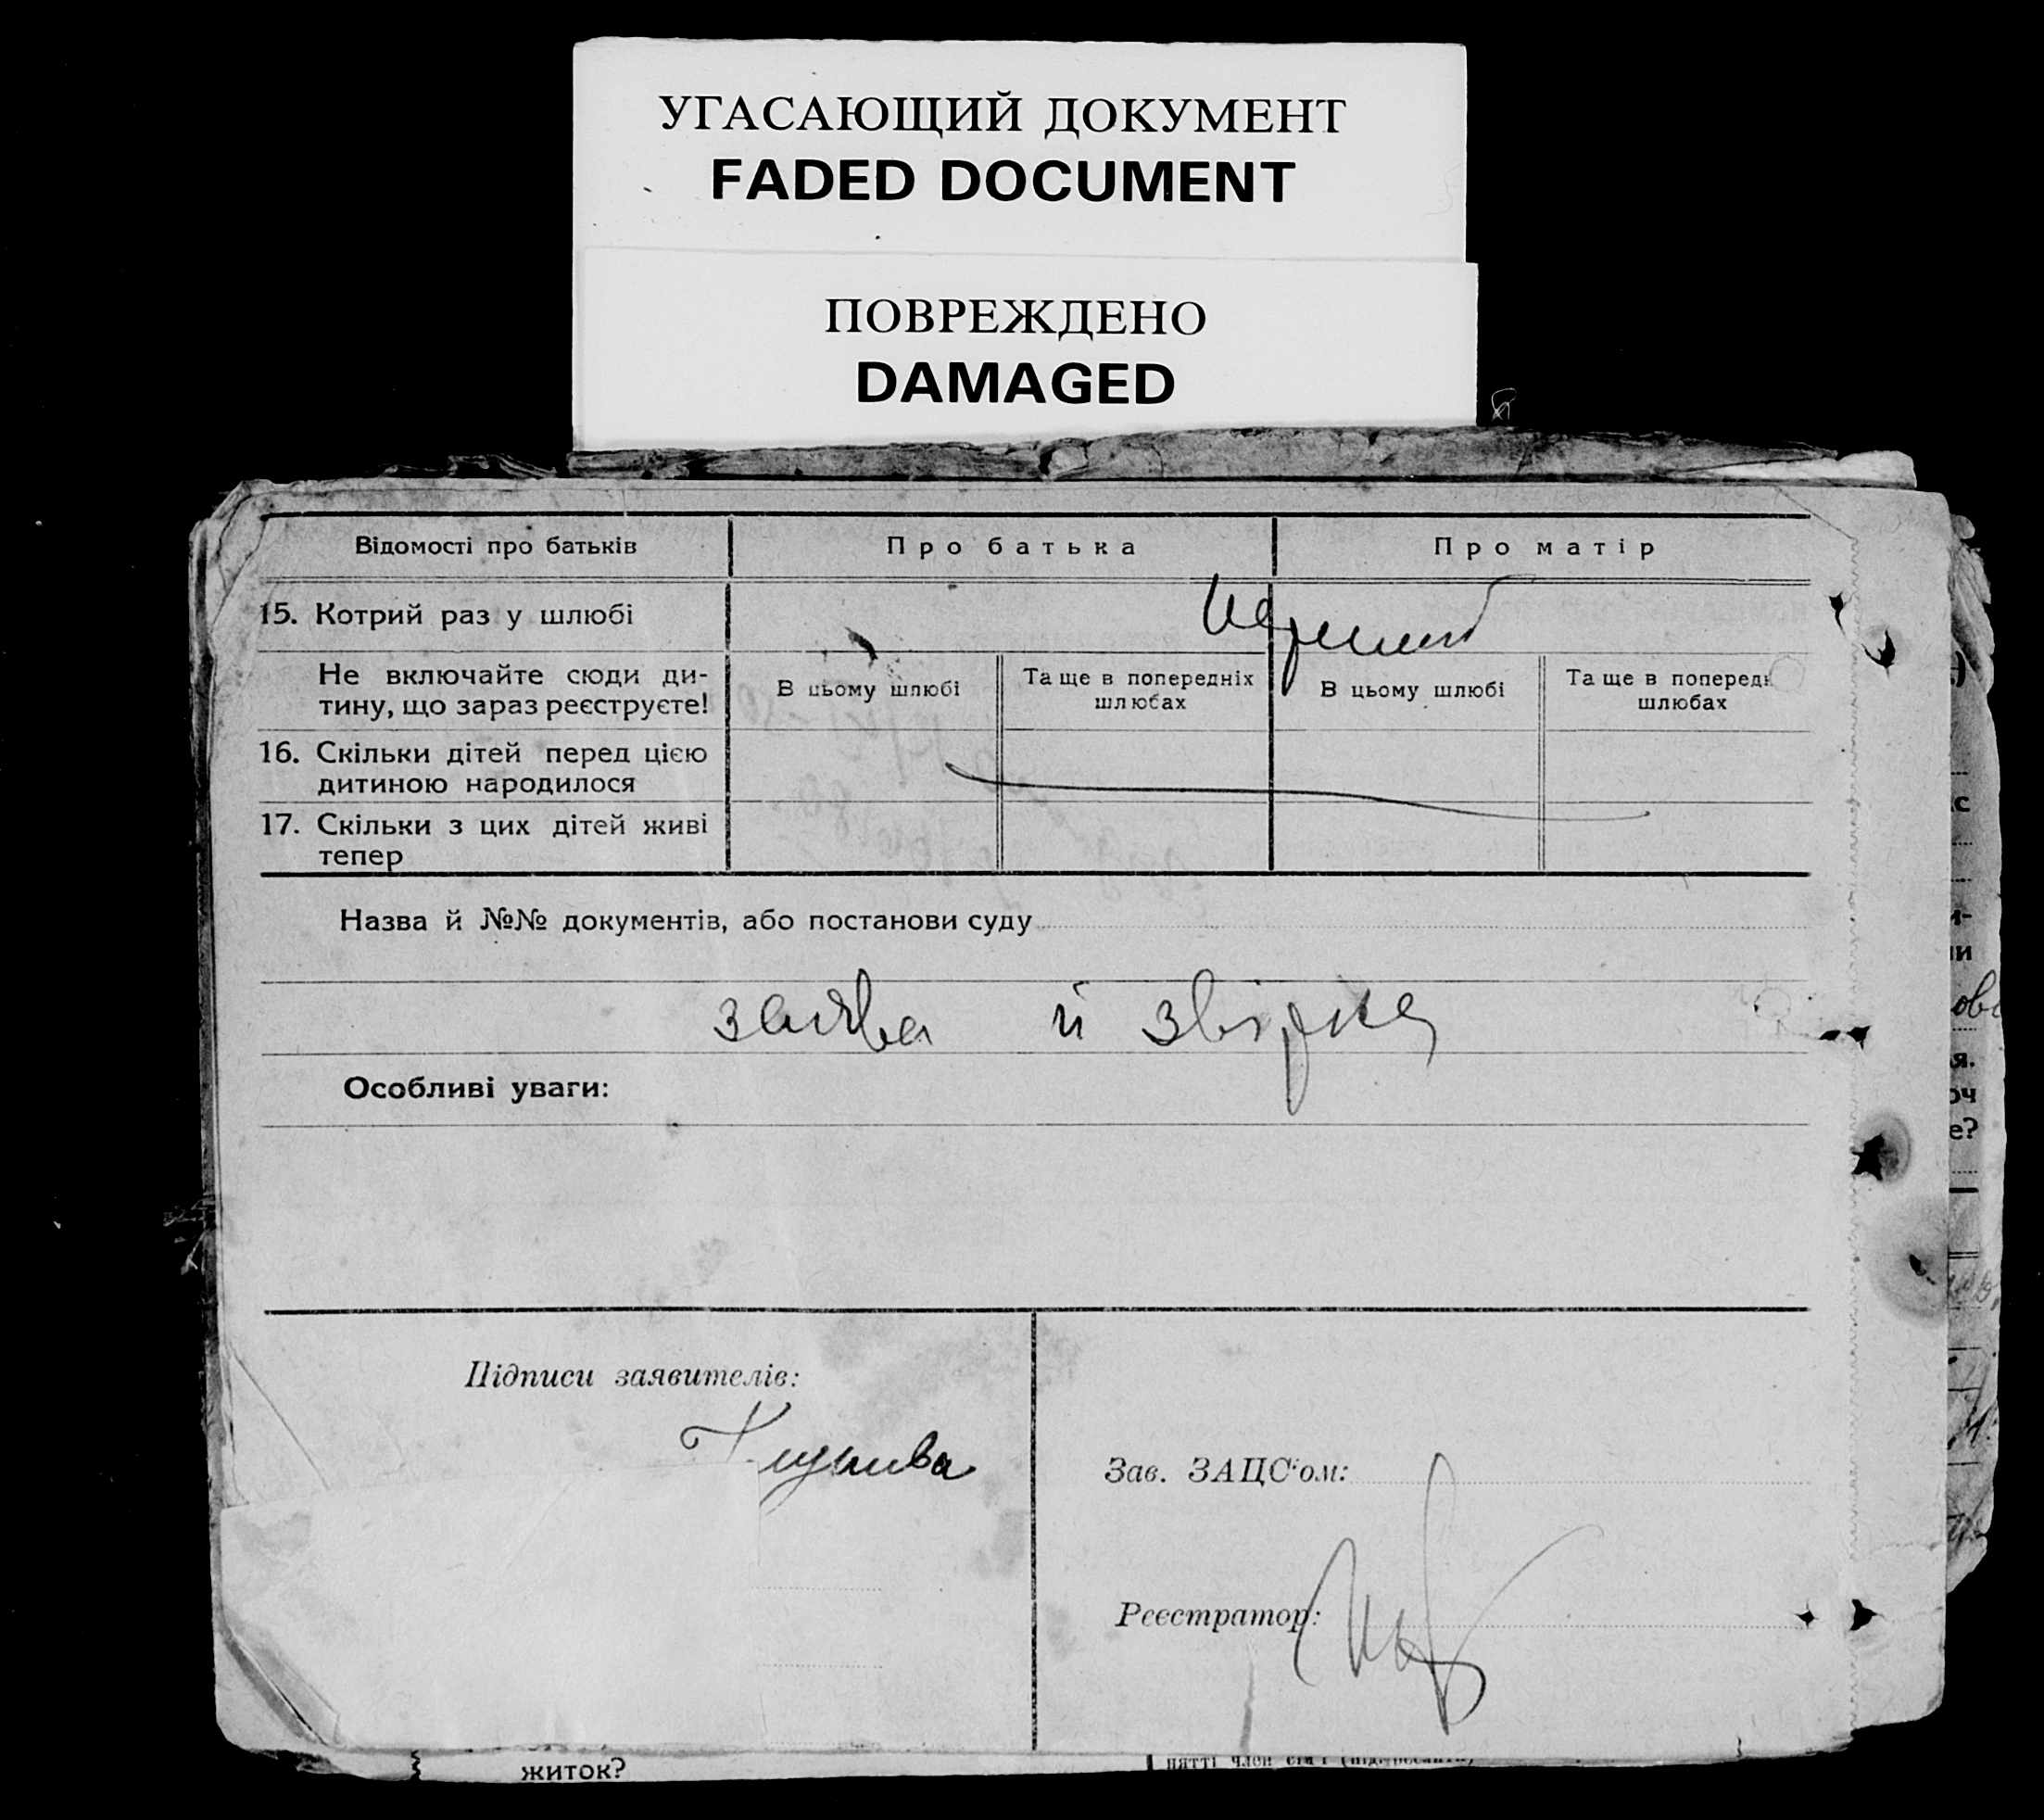 УГАСАЮЩИЙ ДОКУМЕНТ
FADED DOCUMENT
ПОВРЕЖДЕНО
DAMAGED
Відомості про батьків
Про батька
Про матір
15. Котрий раз у шлюбі
Не включайте сюди ди-
тину, що зараз реєструєте!
В цьому шлюбі
Та ще в попередніх
шлюбах
В цьому шлюбі
Та ще в поперед
шлюбах
16. Скільки дітей перед цією
дитиною народилося
17. Скільки з цих дітей живі
тепер
Назва й №№ документів, або постанови суду
заява й звірка
Особливі уваги:
Підписи заявителів:
Зав. ЗАЦС'ом:
Реєстратор:
житок?